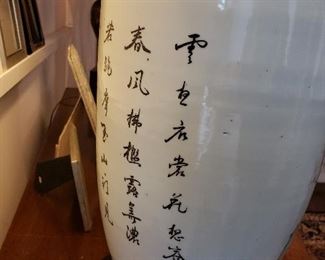 雲想衣裳花想容
春風拂檻露華濃
若非群玉山頭見